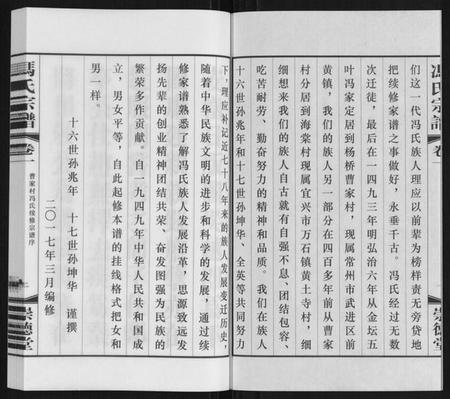 们这一代冯氏族人理应以前辈为榜样责无旁贷地
把续修家谱之事做好，永垂千古。冯氏经过无数
次迁徙，最后在一四九三年明弘治六年从金坛五
叶冯家定居到杨桥曹家村，现属常州市武进区前
黄镇，我们的族人另一部分在四百多年前从曹家
村分居到海棠村现属宜兴市万石镇黄土寺村，细
细想来我们的族人自古就有自强不息、团结包容、
吃苦耐劳、勤奋努力的精神和品质。我们在族人
十六世孙兆年和十七世孙坤华、全英等共同努力
冯氏宗谱
卷一
崇德堂
下，理应补记近七十八年来的族人发展变迁历史，
随着中华民族文明的进步和科学的发展，通过续
修家谱熟悉了解冯氏族人发展沿革，思源致远发
扬先辈的创业精神团结共荣、奋发图强为民族的
繁荣多作贡献。自一九四九年中华人民共和国成
立，男女平等，自此起修本谱的挂线格式把女和
男一样。
十六世孙兆年 十七世孙坤华 谨撰
二〇一七年三月编修
馮氏宗譜
卷一
曹家村冯氏续修宗谱序
崇德堂